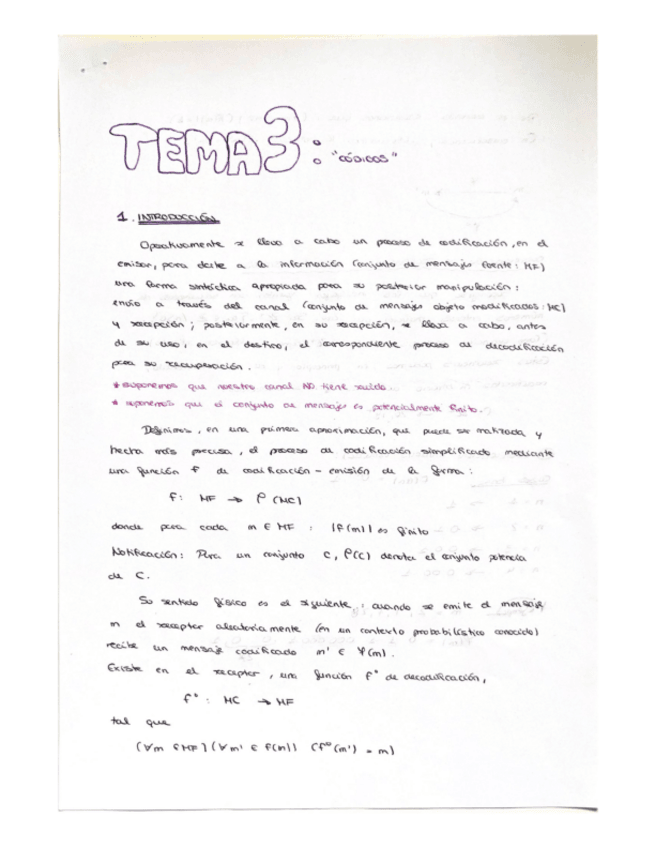 TEMA 3: "CÓDIGOS"
1. INTRODUCCIÓN
Operativamente se lleva a cabo un proceso de codificación, en el
emisor, para darle a la información (conjunto de mensajes fuente: MF)
una forma sintáctica apropiada para su posterior manipulación:
envío a través del canal (conjunto de mensajes objeto modificados: MC)
y recepción; posteriormente, en su recepción, se lleva a cabo, antes
de su uso, en el destino, el correspondiente proceso de decodificación
para su recuperación.
* suponemos que nuestro canal NO tiene ruido
* suponemos que el conjunto de mensajes es potencialmente finito.
Definimos, en una primera aproximación, que puede ser matizada y
hecha más precisa, el proceso de codificación simplificado mediante
una función f de codificación - emisión de la forma:
f: MF → P (MC)
donde para cada m ∈ MF : |f(m)| es finito
Notificación: Para un conjunto C, P(C) denota el conjunto potencia
de C.
Su sentido físico es el siguiente: cuando se emite el mensaje
m el receptor aleatoriamente (en un contexto probabilístico conocido)
recibe un mensaje codificado m' ∈ f(m).
Existe en el receptor, una función fº de decodificación,
fº : MC → MF
tal que
(∀m ∈ MF) (∀m' ∈ f(m)) (fº(m') = m)